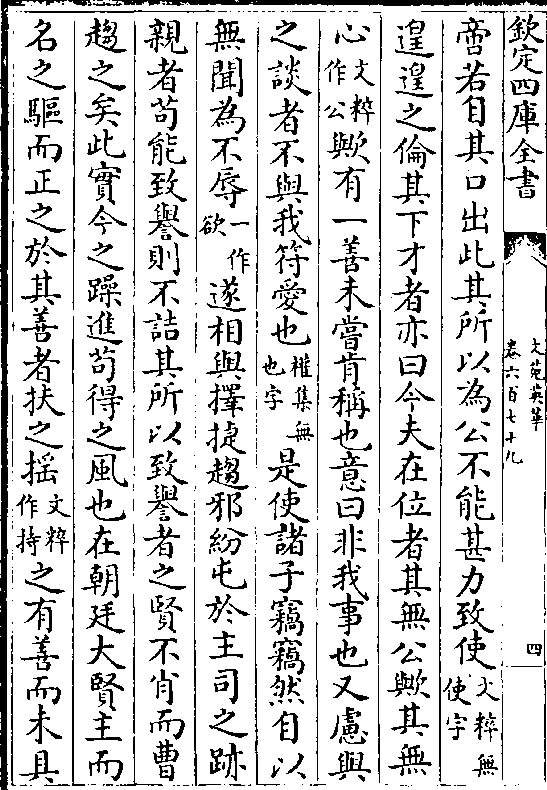 欽定四庫全書
文苑英華
卷六百七十九
四
啻若自其口出此其所以為公不能甚力致使文粹無使字
遑遑之倫其下才者亦曰今夫在位者其無公歟其無
心文粹作公歟有一善未嘗肯稱也意曰非我事也又慮與
之談者不與我符愛也權集無也字是使諸子竊竊然自以
無聞為不辱一作欲遂相與擇捷趨邪紛屯於主司之跡
親者苟能致譽則不詰其所以致譽者之賢不肖而曹
趨之矣此實今之躁進苟得之風也在朝廷大賢主而
名之驅而正之於其善者扶之搖文粹作持之有善而未具